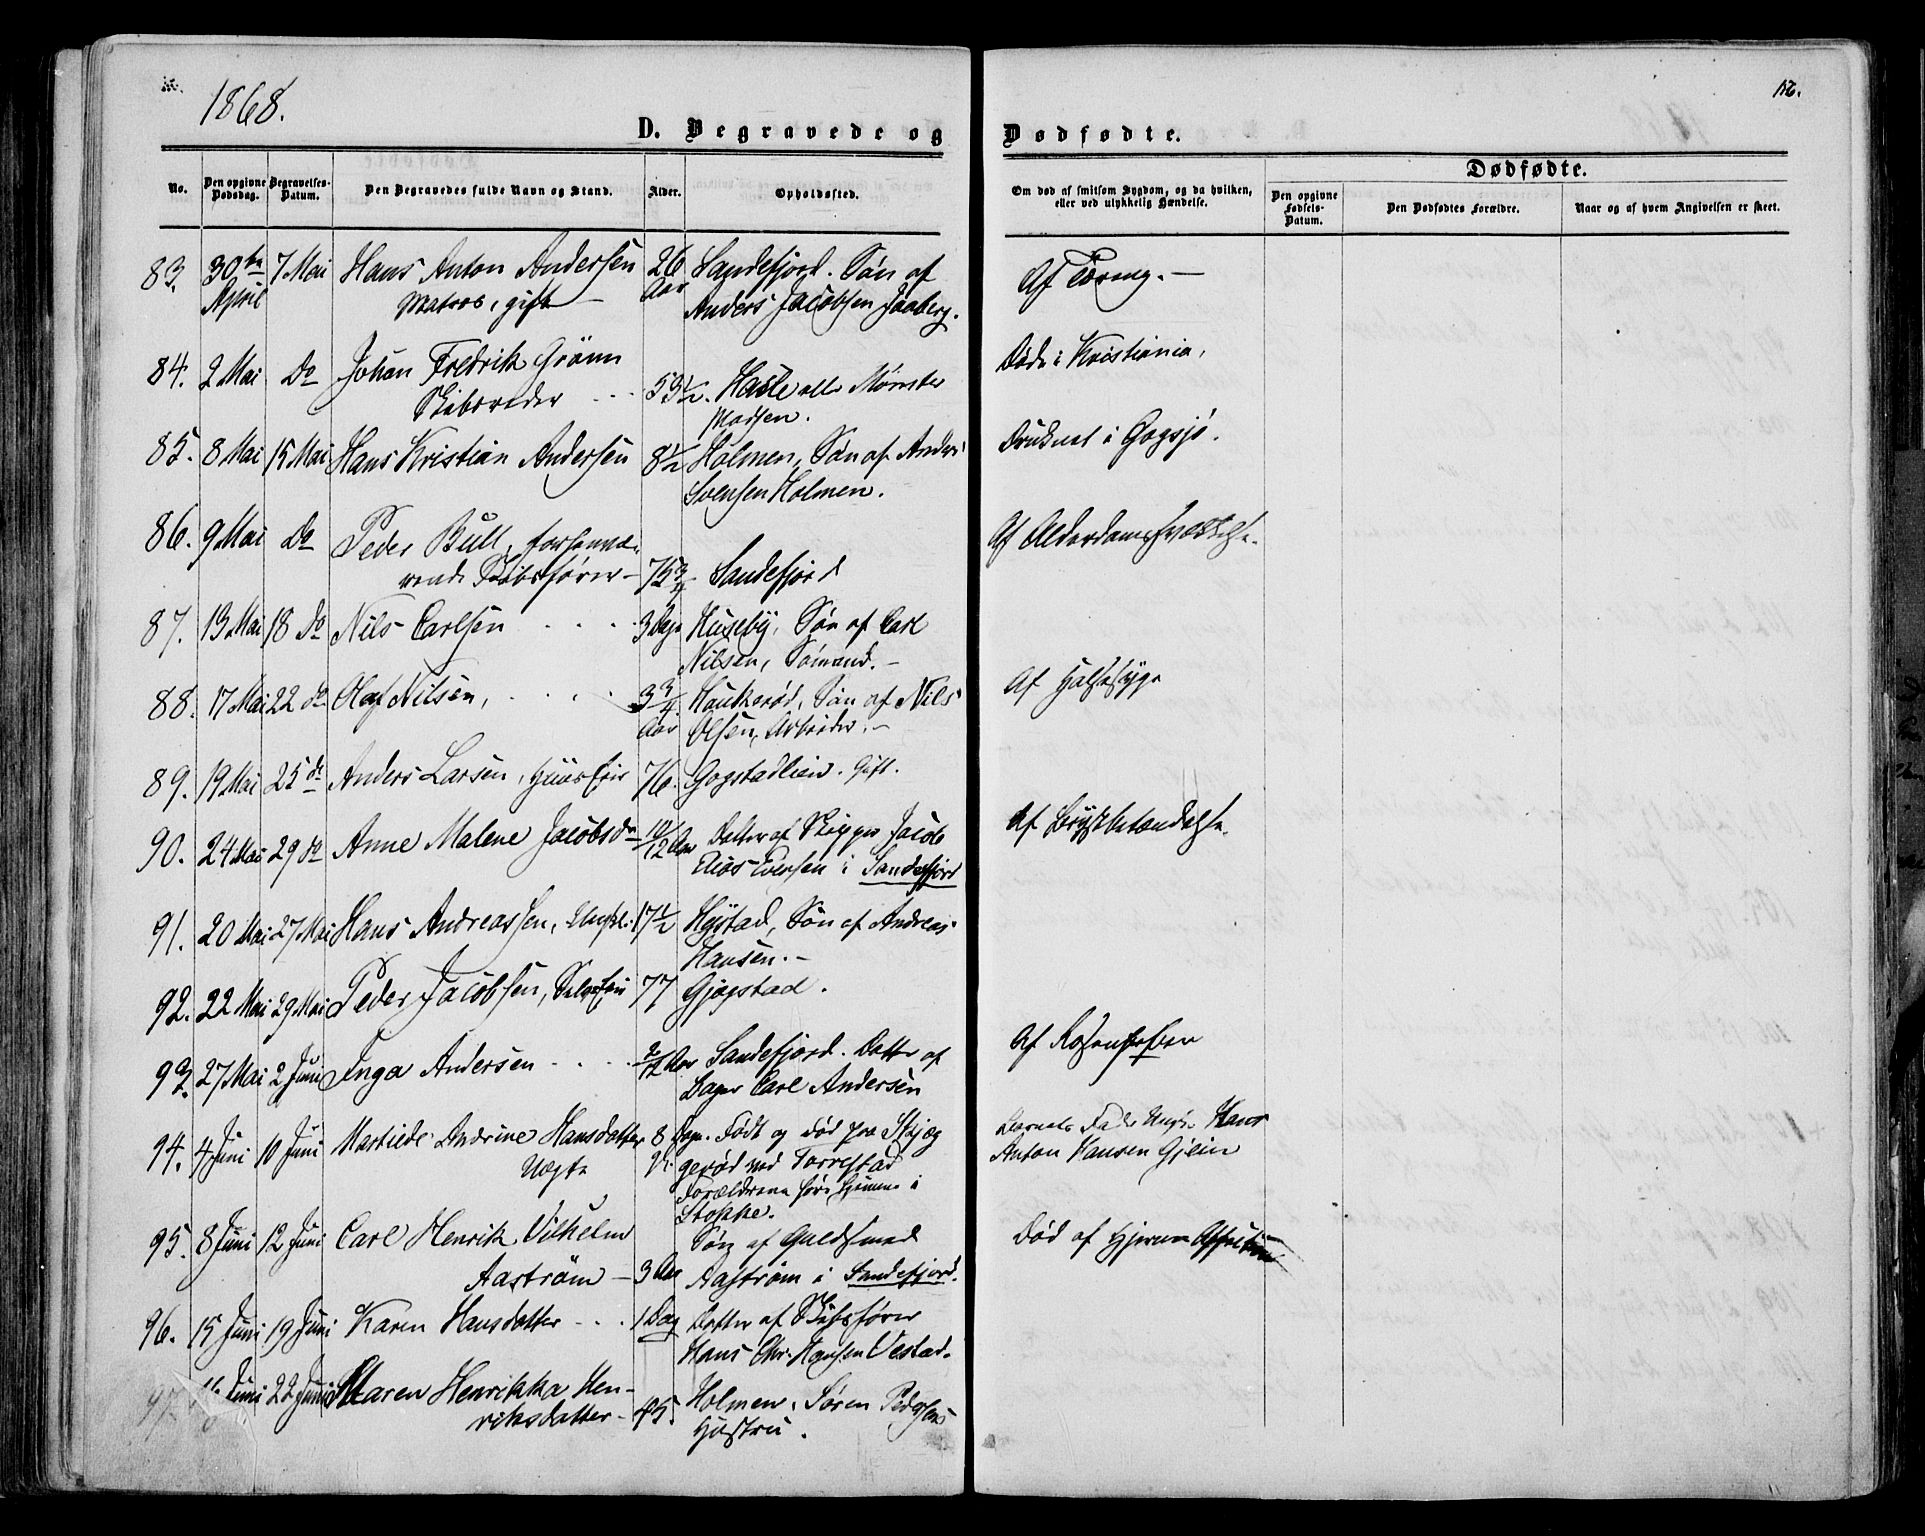 1868.
D. Begravede og Dødfødte.
No. Den opgivne Dødsdag. Begravelses-Datum. Den Begravedes fulde Navn og Stand. Alder. Opholdssted. Om død af smitsom Sygdom, og da hvilken, eller ved ulykkelig Hændelse.
Dødfødte.
Den opgivne Fødsels-Datum. Den Dødfødtes Forældre. Naar og af hvem Angivelsen er skeet.
83. 30te 7 Mai Hans Anton Andersen 26 Sandefjord. Søn af Af Tæring. —
April Matros, gift — Aar Anders Jacobsen Jaaberg.
84. 2 Mai Do Johan Fredrik Grønn Døde i Kristiania,
Skibsreder 53 1/2. Hasle
Madsen.
85. 8 Mai 15 Mai Hans Kristian Andersen 8 1/2 Holmen, Søn af Anders Druknet i Gogsjø.
Svensen Holmen.
86. 9 Mai Do Peder Bull, forhenvæ- Af Alderdomssvækkelse.
rende Skibsfører — 75 3/4 Sandefjord
87. 13 Mai 18 do Nils Carlsen 3 Dage Huseby, Søn af Carl
Nilsen, Sømand. —
88. 17 Mai 22 do Olaf Nilsen, 3 3/4 Haukerød, Søn af Nils Af Halssyge
Aar Olsen, Arbeider. —
89. 19 Mai 25 do Anders Larsen, 76. Gogstadlien. Gift.
90. 24 Mai 29 do Anne Malene Jacobsdr 10/12 Aar Datter af Skipper Jacob Af Brystbetændelse.
Elias Evensen i Sandefjord
91. 20 Mai 27 Mai Hans Andreassen, Ungkl. 17 1/2 Hystad, Søn af Andreas
Hansen. —
92. 22 Mai 29 Mai Peder Jacobsen, 77 Gjogstad.
93. 27 Mai 2 Juni Inga Andersen 2/12 Aar Sandefjord. Datter af Af Rosenfeber
Bager Carl Andersen
94. 4 Juni 10 Juni Mathilde Andrine Hansdatter 8 Dage. Født og død paa Skjæg Barnets Fader Ungk. Hans
Uægte gerød ved Torrestad Anton Hansen Gjein
Forældrene høre hjemme i
Stokke.
95. 8 Juni 12 Juni Carl Henrik Vilhelm Søn af Guldsmed Død af Hjerne
Aastrøm — 3 Aar Aastrøm i Sandefjord.
96. 15 Juni 19 Juni Karen Hansdatter 1 Dag Datter af Skibsfører
Hans Chr. Hansen Vestad.
97. Juni 22 Juni Maren Henrikka Hen-
riksdatter — 45. Holmen, Søren Pedersens
Hustru.